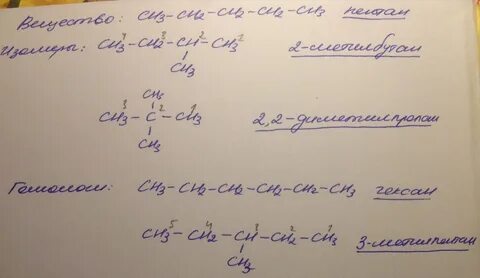 Вещество: CH3-CH2-CH2-CH2-CH3 пентан
Изомеры: CH3-CH2-CH-CH3 2-метилбутан
4 3 2 1
CH3
CH3
3 2 1
CH3-C-CH3 2,2-диметилпропан
CH3
Гомологи: CH3-CH2-CH2-CH2-CH2-CH3 гексан
5 4 3 2 1
CH3-CH2-CH-CH2-CH3 3-метилпентан
CH3